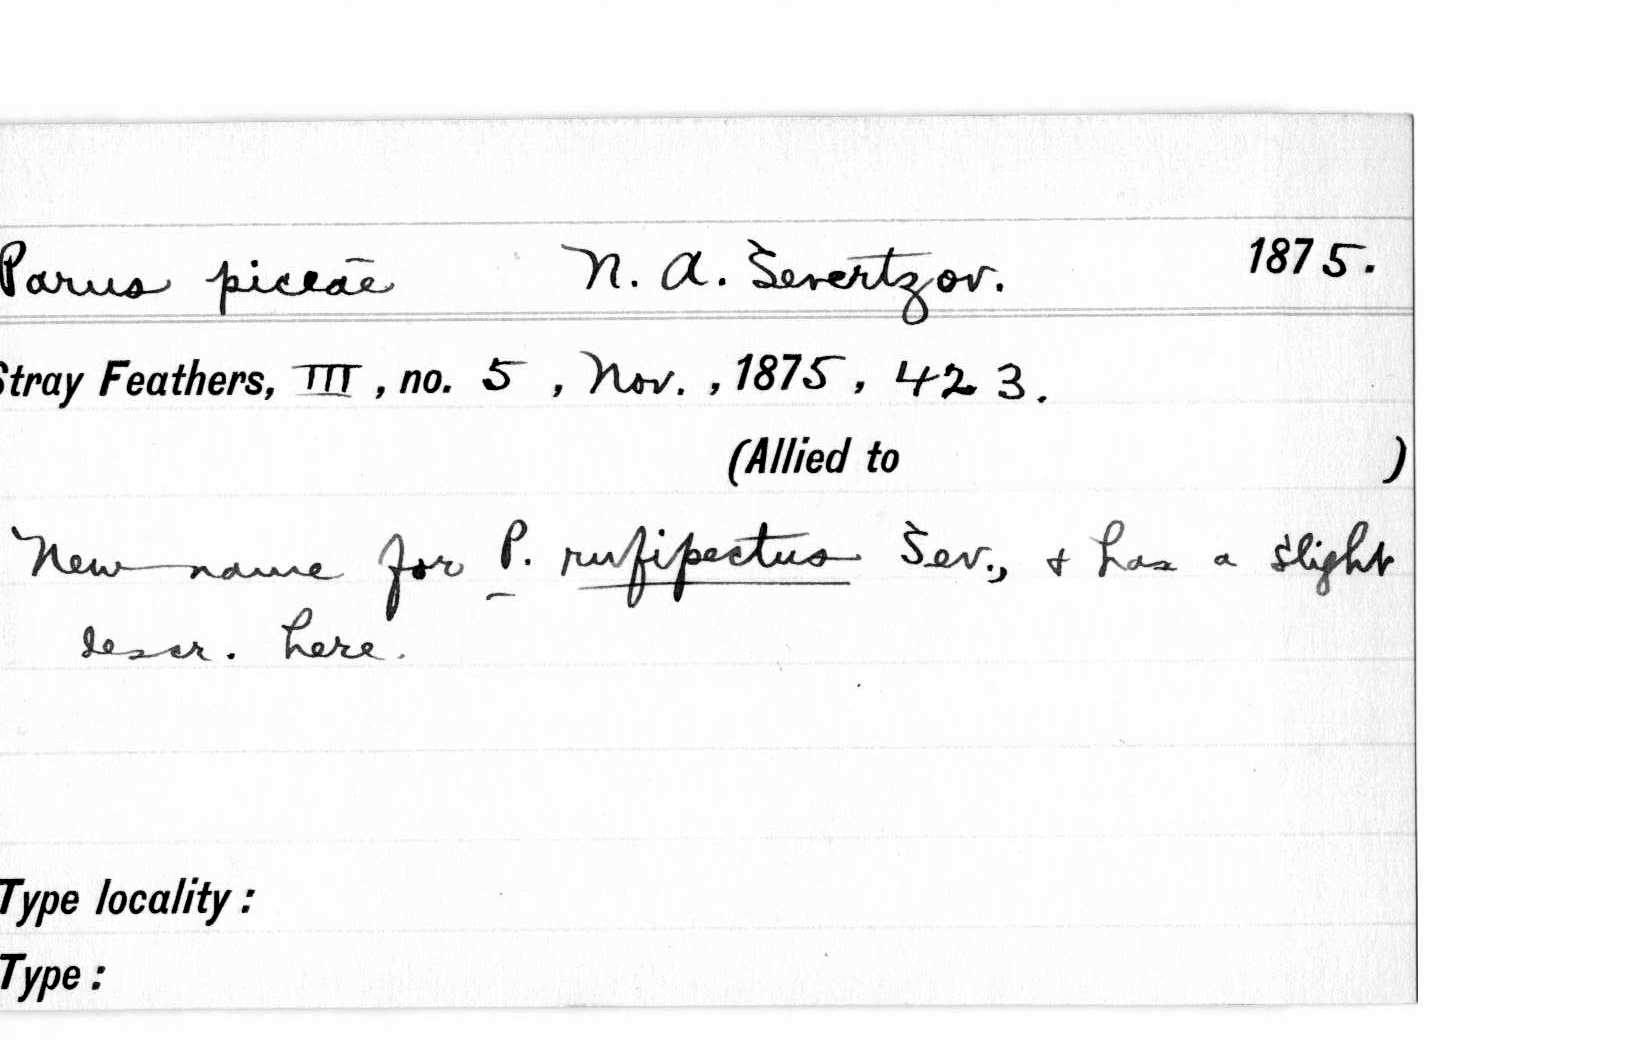 Parus piceae N. A. Severtzov. 1875.
Stray Feathers, III, no. 5, Nov., 1875, 423.
(Allied to )
New name for P. rufipectus Sev., & has a slight
descr. here.
Type locality:
Type: